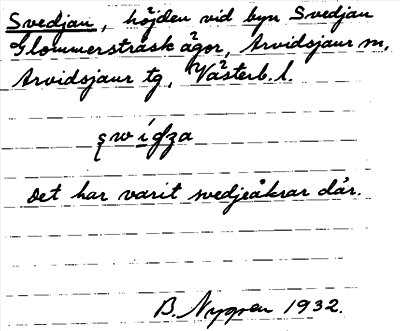 Svedjan, höjden vid byn Svedjan
Glommersträsk ägor, Arvidsjaur sn,
Arvidsjaur tg, Västerb. l.
Det har varit svedjeåkrar där.
B. Nygren 1932.